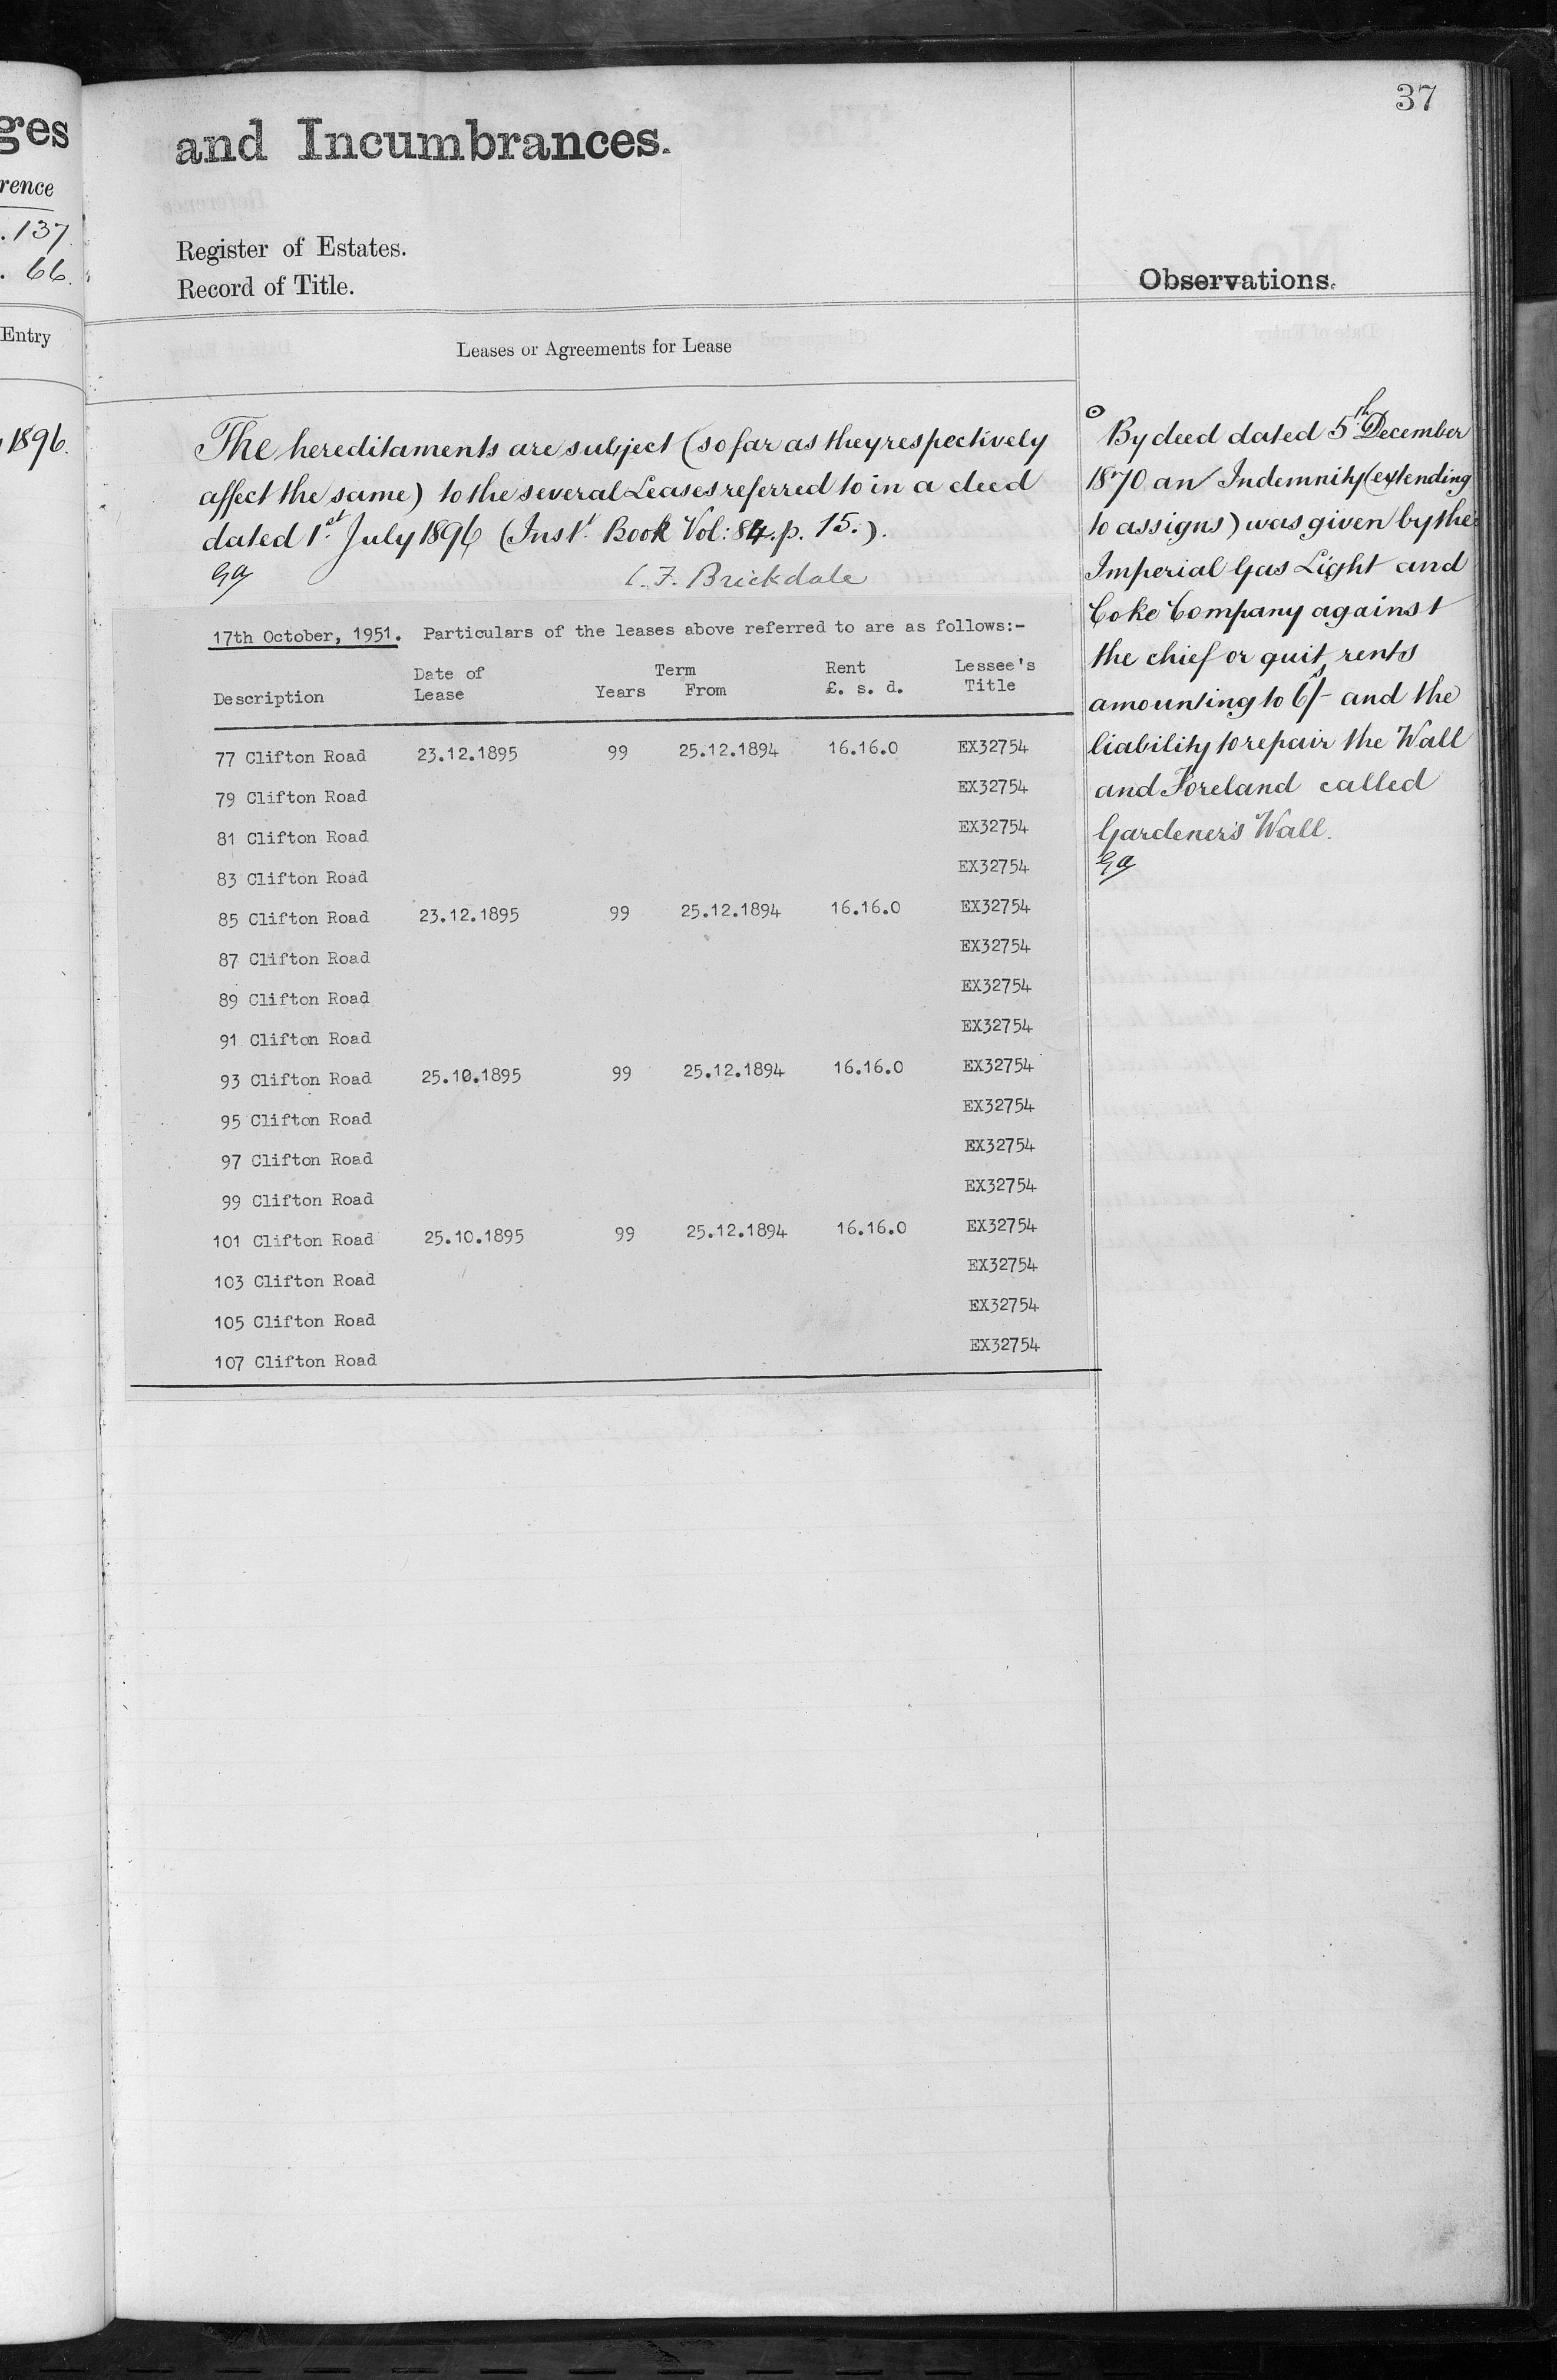 ges
rence
.137.
. 66.
Entry
1896.
37
and Incumbrances.
Register of Estates.
Record of Title.
Observations.
Leases or Agreements for Lease
The hereditaments are subject (so far as they respectively
affect the same) to the several Leases referred to in a deed
dated 1st July 1896 (Inst. Book Vol: 84. p. 15.).
C. F. Brickdale
17th October, 1951. Particulars of the leases above referred to are as follows:-
Date of Term Rent Lessee's
Description Lease Years From £. s. d. Title
77 Clifton Road 23.12.1895 99 25.12.1894 16.16.0 EX32754
79 Clifton Road EX32754
81 Clifton Road EX32754
83 Clifton Road EX32754
85 Clifton Road 23.12.1895 99 25.12.1894 16.16.0 EX32754
87 Clifton Road EX32754
89 Clifton Road EX32754
91 Clifton Road EX32754
93 Clifton Road 25.10.1895 99 25.12.1894 16.16.0 EX32754
95 Clifton Road EX32754
97 Clifton Road EX32754
99 Clifton Road EX32754
101 Clifton Road 25.10.1895 99 25.12.1894 16.16.0 EX32754
103 Clifton Road EX32754
105 Clifton Road EX32754
107 Clifton Road EX32754
By deed dated 5th December
1870 an Indemnity (extending
to assigns) was given by the
Imperial Gas Light and
Coke Company against
the chief or quit rents
amounting to 6s/- and the
liability to repair the Wall
and Foreland called
Gardener's Wall.